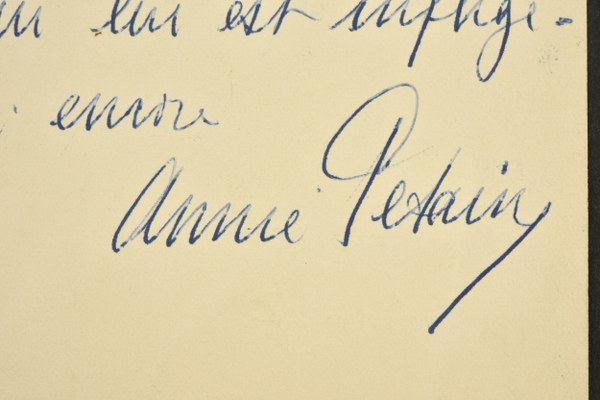 lui est infligé.
encore
Annie Petain